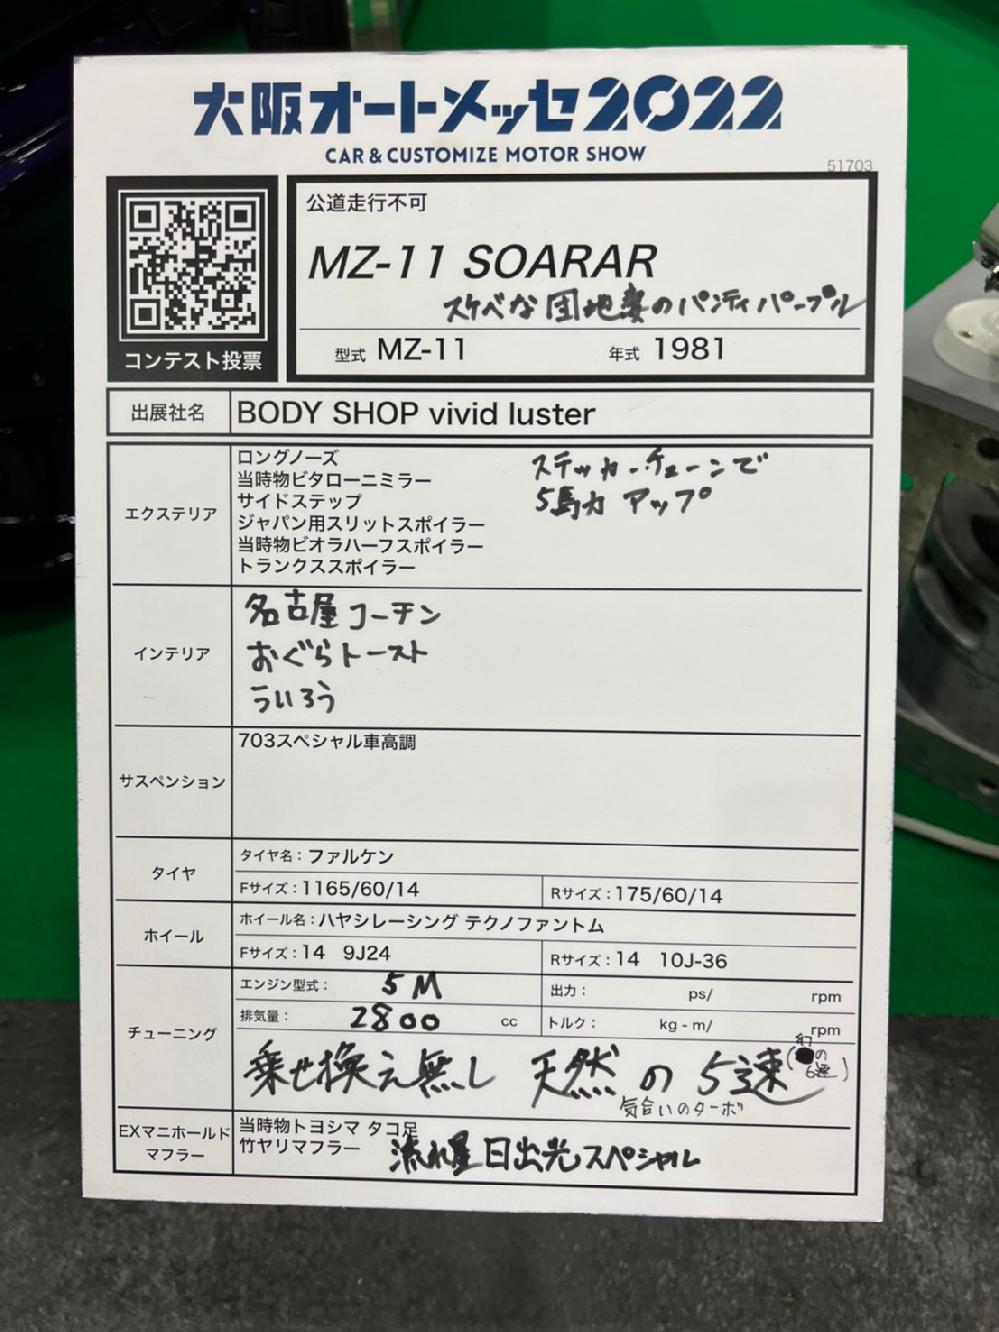 大阪オートメッセ2022
CAR & CUSTOMIZE MOTOR SHOW
51703
コンテスト投票
公道走行不可
MZ-11 SOARAR
スケベな団地妻のパンティパープル
型式 MZ-11 年式 1981
出展社名 BODY SHOP vivid luster
エクステリア
ロングノーズ
当時物ビタローニミラー
サイドステップ
ジャパン用スリットスポイラー
当時物ビオラハーフスポイラー
トランクススポイラー
ステッカーチューンで
5馬力 アップ
インテリア
名古屋コーチン
おぐらトースト
ういろう
サスペンション
703スペシャル車高調
タイヤ
タイヤ名：ファルケン
Fサイズ：1165/60/14 Rサイズ：175/60/14
ホイール
ホイール名：ハヤシレーシング テクノファントム
Fサイズ：14 9J24 Rサイズ：14 10J-36
チューニング
エンジン型式： 5M 出力： ps/ rpm
排気量： 2800 cc トルク： kg-m/ rpm
乗せ換え無し 天然の5速
(幻の6速)
気合いのターボ
EXマニホールド
マフラー
当時物トヨシマ タコ足
竹ヤリマフラー 流れ星 日出光スペシャル